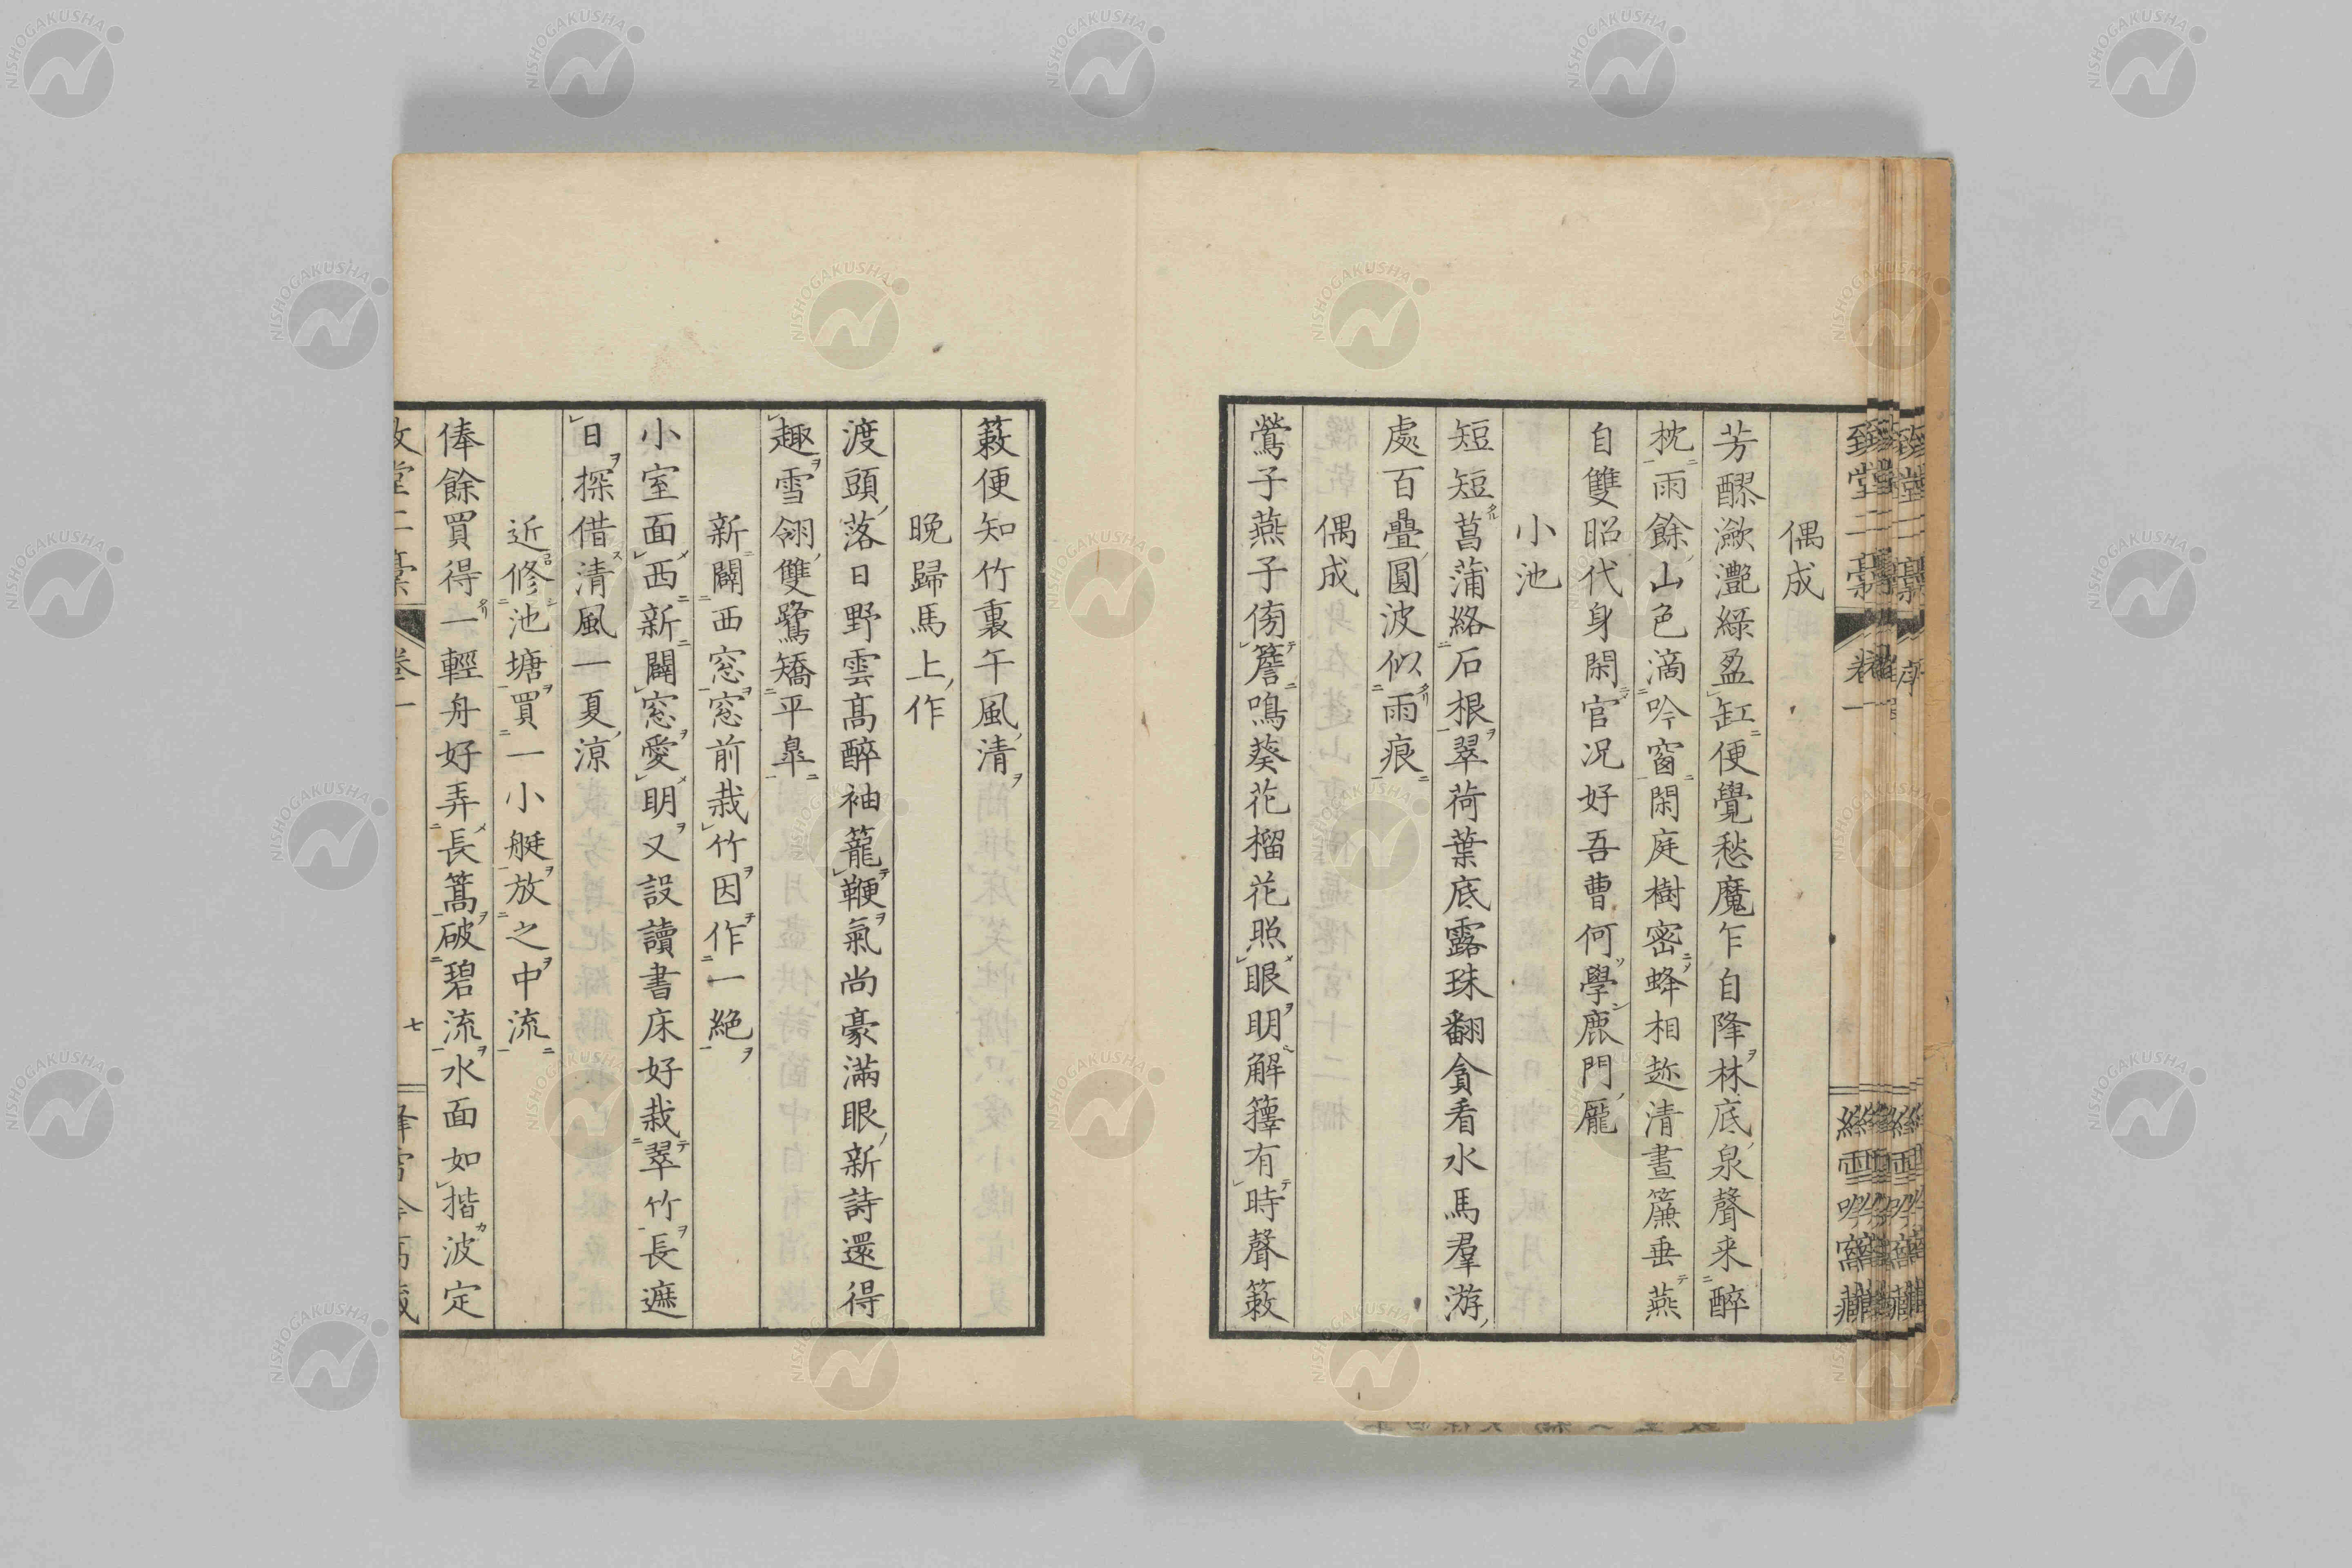 偶成
芳醪瀲灔綠盈缸便覺愁魔乍自降林底泉聲来醉
枕雨餘山色滴吟窗閑庭樹密蜂相趂清晝簾垂燕
自雙昭代身閑官况好吾曹何學鹿門龐
小池
短短菖蒲絡石根翠荷葉底露珠翻貪看水馬羣游
處百疊圓波似雨痕
偶成
鶯子燕子傍簷鳴葵花榴花照眼明解籜有時聲簌
簌便知竹裏午風清
晩歸馬上作
渡頭落日野雲髙醉袖籠鞭氣尚豪滿眼新詩還得
趣雪翎雙鷺矯平臯
新闢西窓窓前栽竹因作一絕
小室面西新闢窓愛明又設讀書床好栽翠竹長遮
日探借清風一夏涼
近修池塘買一小艇放之中流
俸餘買得一輕舟好弄長篙破碧流水面如揩波定
七
NISHOGAKUSHA